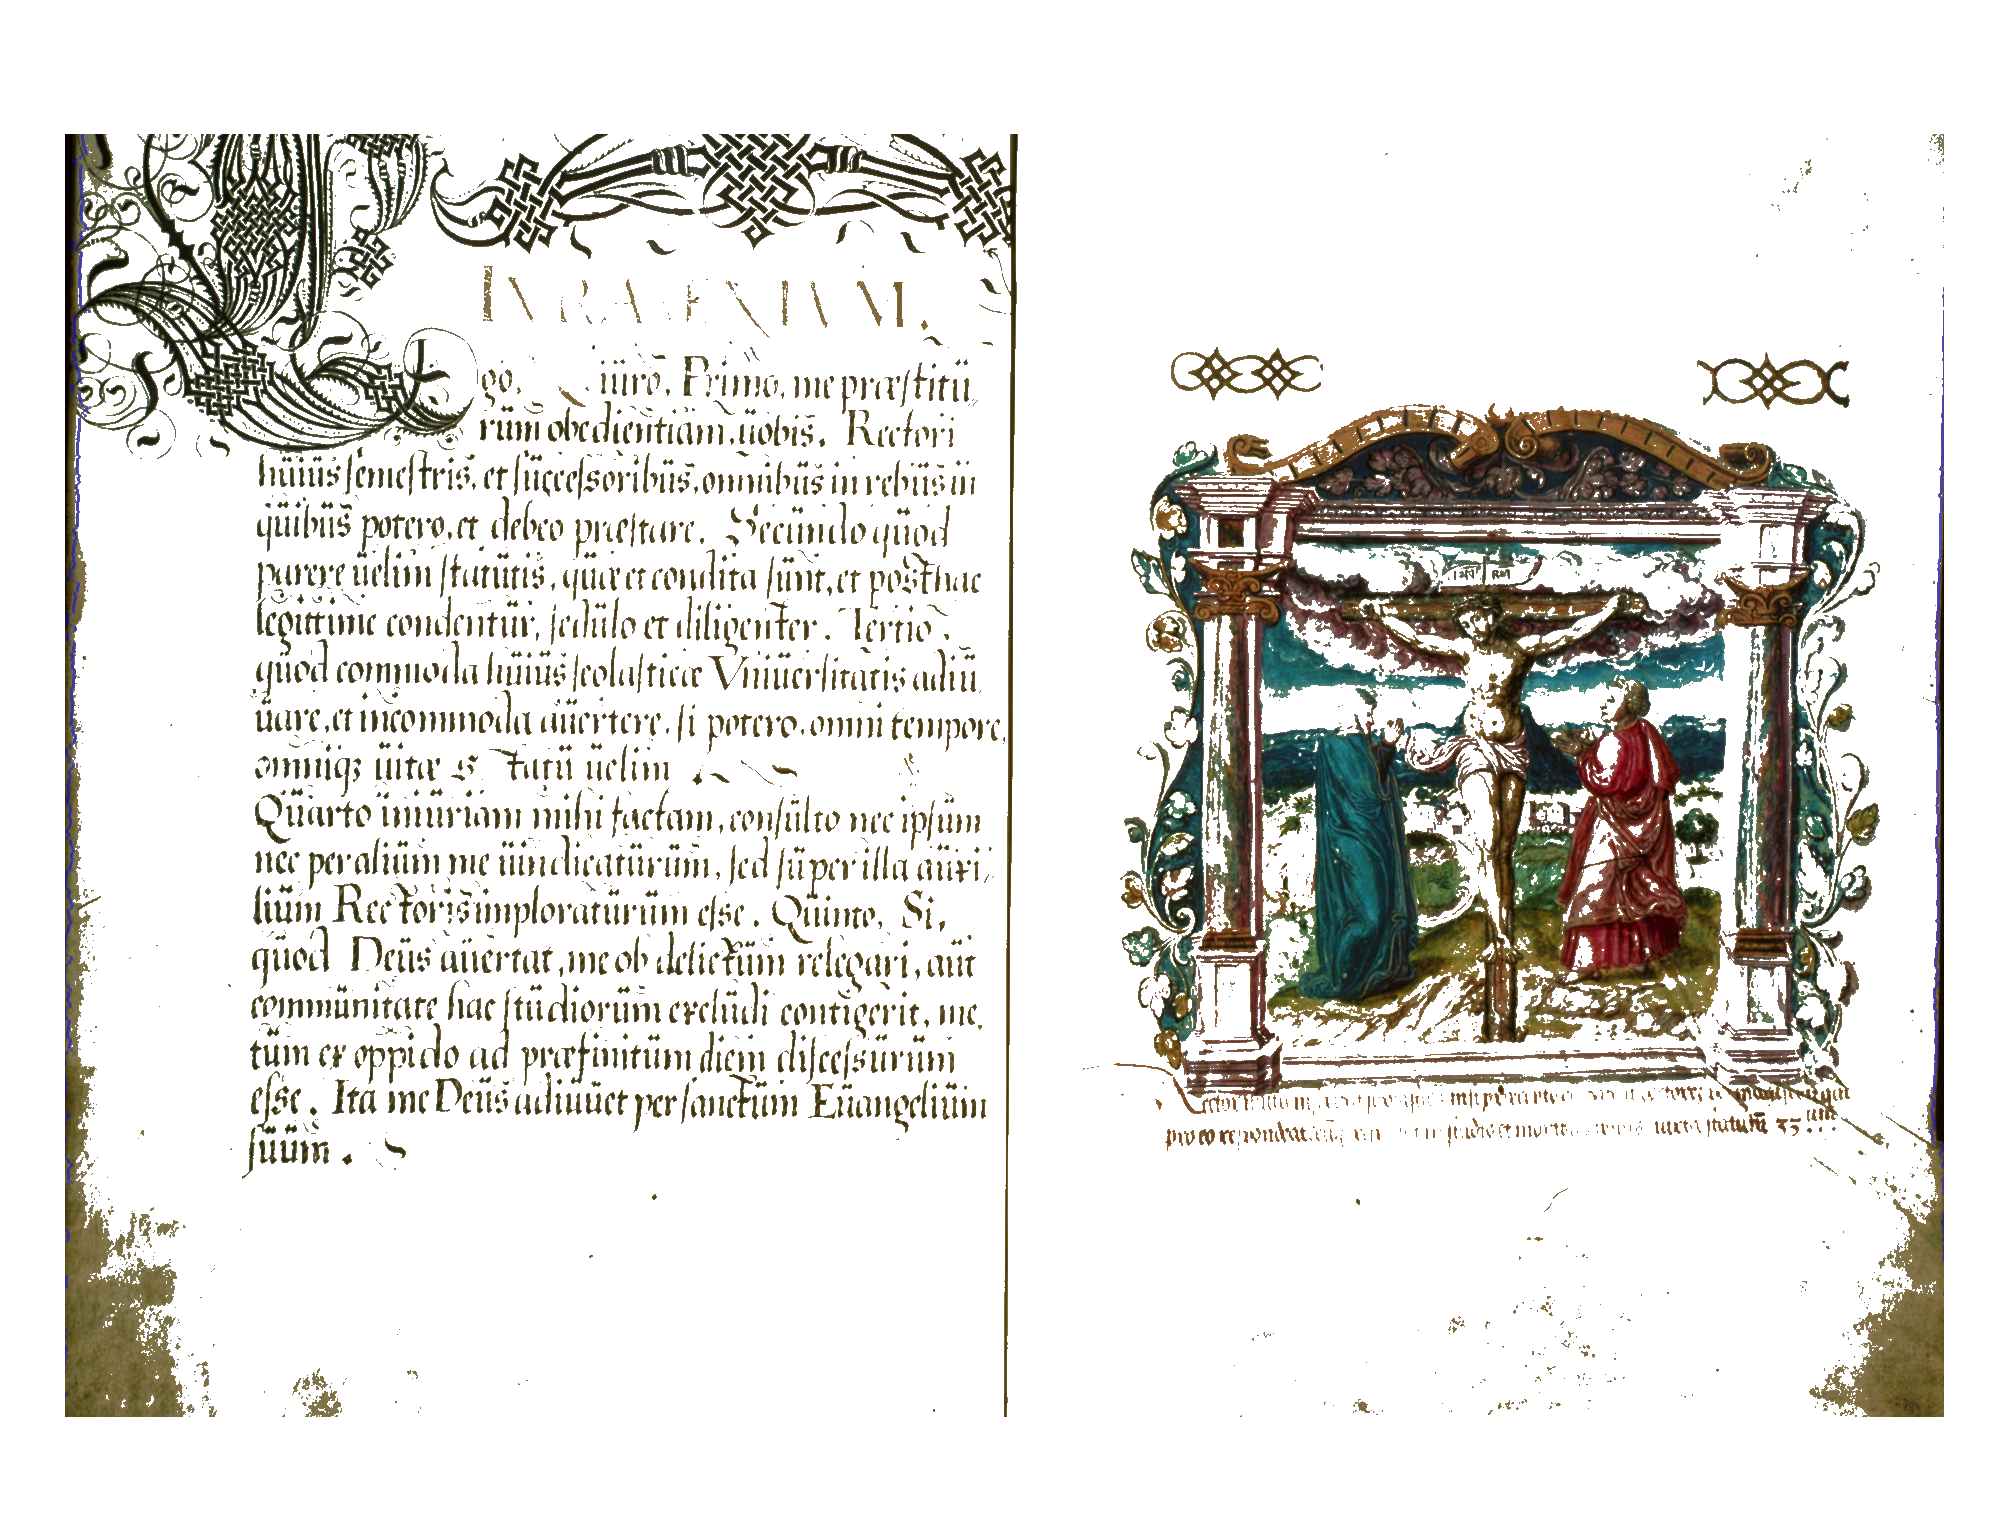 IVRAMENTVM.
Ego. N. iüro. Primo, me præstitü,,
rüm obedientiam, üobis. Rectori
hüiüs semestris, et süccessoribüs, omnibüs in rebüs in
qüibüs potero, et debeo præstare. Secündo qüod
parere üelim statütis, qüæ et condita sünt, et posthac
legittime condentür, sedülo et diligenter. Tertio,
qüod commoda hüiüs scolasticæ Vniüersitatis adiü
üare, et incommoda aüertere, si potero, omni tempore,
omniq; üitæ statü üelim.
Qüarto iniüriam mihi factam, consülto nec ipsüm
nec per aliüm me üindicatürüm, sed süper illa aüxi//
liüm Rectoris imploratürüm esse. Qüinto, Si,
qüod Deüs aüertat, me ob delictüm relegari, aüt
commünitate hac stüdiorüm exclüdi contigerit, me,
tüm ex oppido ad præfinitüm diem discessürüm
esse. Ita me Deüs adiüüet per sanctüm Eüangeliüm
süüm.
pro eo respondeat studio et moribus iuxta statutum 33